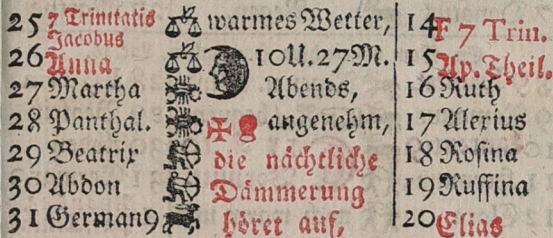 25 7 Trinitatis warmes Wetter, 14 F 7 Trin.
Jacobus
26 Anna 10 U. 27 M. 15 Ap. Theil.
27 Martha Abends, 16 Ruth
28 Panthal. angenehm, 17 Alexius
29 Beatrix die nächtliche 18 Rosina
30 Abdon Dämmerung 19 Ruffina
31 German9 höret auf, 20 Elias